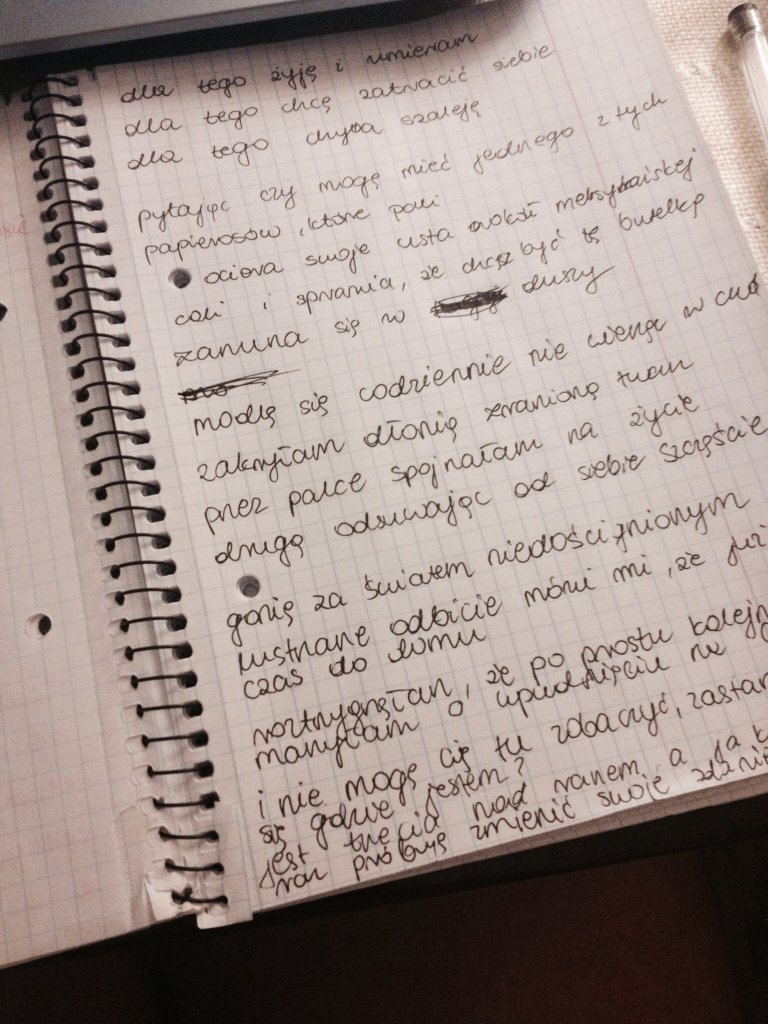 dla tego żyję i umieram
dla tego chcę zatracić siebie
dla tego chyba szaleję
pytając czy mogę mieć jednego z tych
papierosów, które pali
ociera swoje usta wokół meksykańskiej
coli i sprawia, że chcę być tą butelką
zanurza się w duszy
modlę się codziennie nie wierząc w cuda
zakryłam dłonią zranioną twarz
przez palce spojrzałam na życie
drugą odsuwając od siebie szczęście
gonię za światem niedoścignionym
lustrzane odbicie mówi mi, że już
czas do domu
rozstrzygnęłam, że po prostu kolejn
marzyłam o upiednięciu na
i nie mogę cię tu zobaczyć, zastan
się gdzie jestem?
jest trzecia nad ranem, a ja k
raz próbuję zmienić swoje zdanie
się